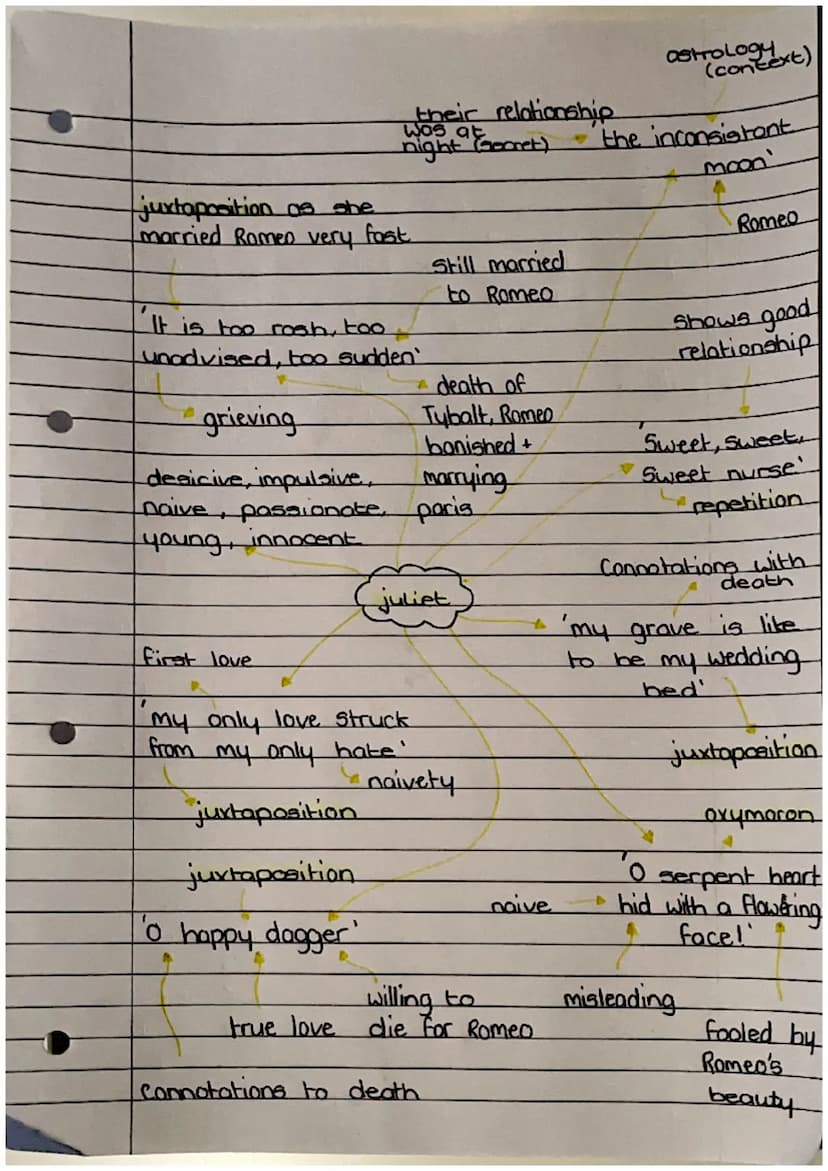 astrology
(context)
their relationship
was at
night (secret)
'the inconsistant
moon'
Romeo
juxtaposition as she
married Romeo very fast
still married
to Romeo
'It is too rash, too
unadvised, too sudden'
grieving
death of
Tybalt, Romeo
banished +
marrying
paris
shows good
relationship
'Sweet, sweet,
sweet nurse'
repetition
desicive, impulsive,
naive, passionate,
young, innocent
juliet
connotations with
death
'my grave is like
to be my wedding
bed'
juxtaposition
first love
'my only love struck
from my only hate'
naivety
juxtaposition
oxymoron
'O serpent heart
hid with a flowering
face!'
naive
misleading
fooled by
Romeo's
beauty
juxtaposition
'O happy dagger'
willing to
die for Romeo
true love
connotations to death